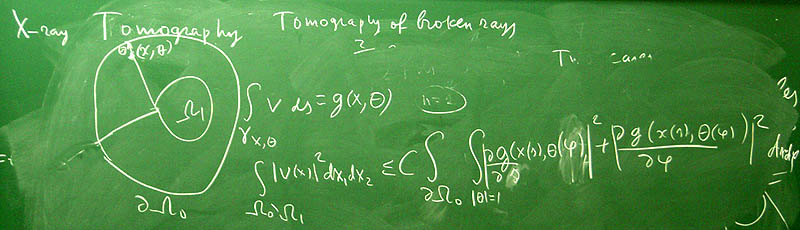 X-ray Tomography Tomography of broken rays
(x, θ)
Ω₁
∂Ω₀
∫_{γ_{x,θ}} V ds = g(x, θ) n=2
∫_{Ω₀\Ω₁} |V(x)|² dx₁dx₂ ≤ C ∫_{∂Ω₀} ∫_{|θ|=1} |∂g(x(s), θ(φ))/∂s|² + |∂g(x(s), θ(φ))/∂φ|² ds dφ